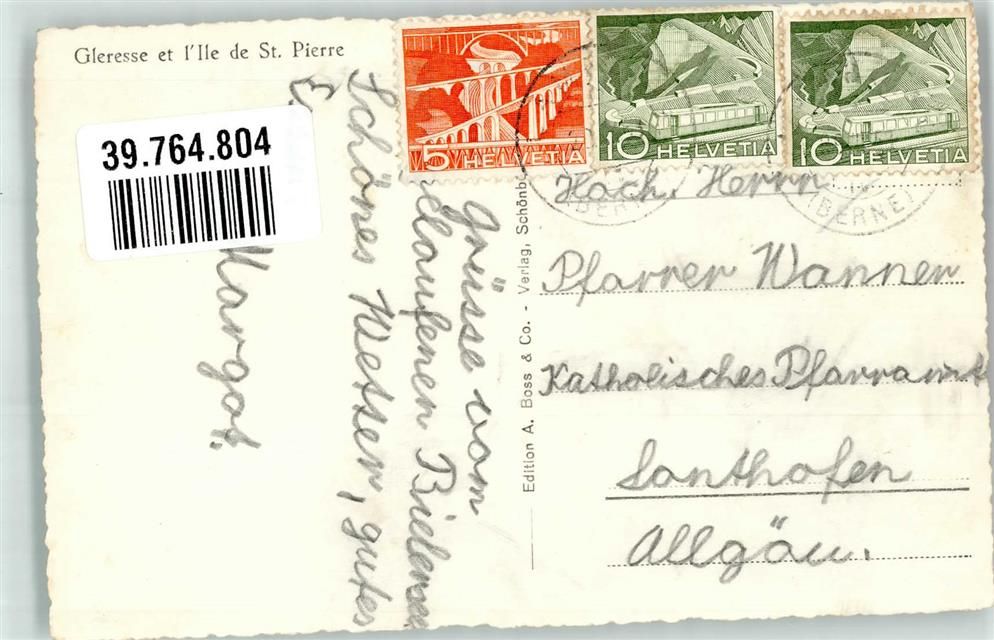 Gleresse et l'Ile de St. Pierre
39.764.804
5 HELVETIA
10 HELVETIA
10 HELVETIA
(BERNE)
(BERNE)
Grüsse vom
blaufenen Bielersee
Schönes Wetter, gutes
E
Margot.
Edition A. Boss & Co. - Verlag, Schönb
Hoch. Herrn
Pfarrer Wanner
Katholisches Pfarramt
Sonthofen
Allgäu.